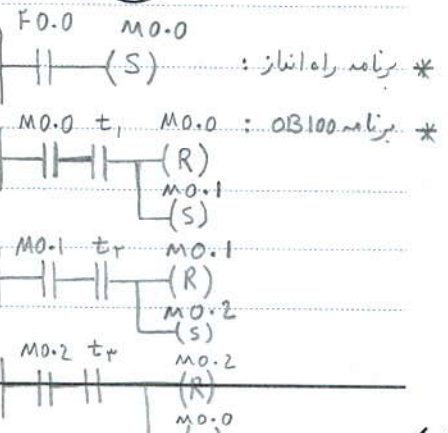 F0.0 M0.0
(S)
* برنامه راه انداز :
M0.0 t₁ M0.0
* برنامه OB100 :
(R)
M0.1
(S)
M0.1 t۲ M0.1
(R)
M0.2
(S)
M0.2 t۳ M0.2
(R)
M0.0